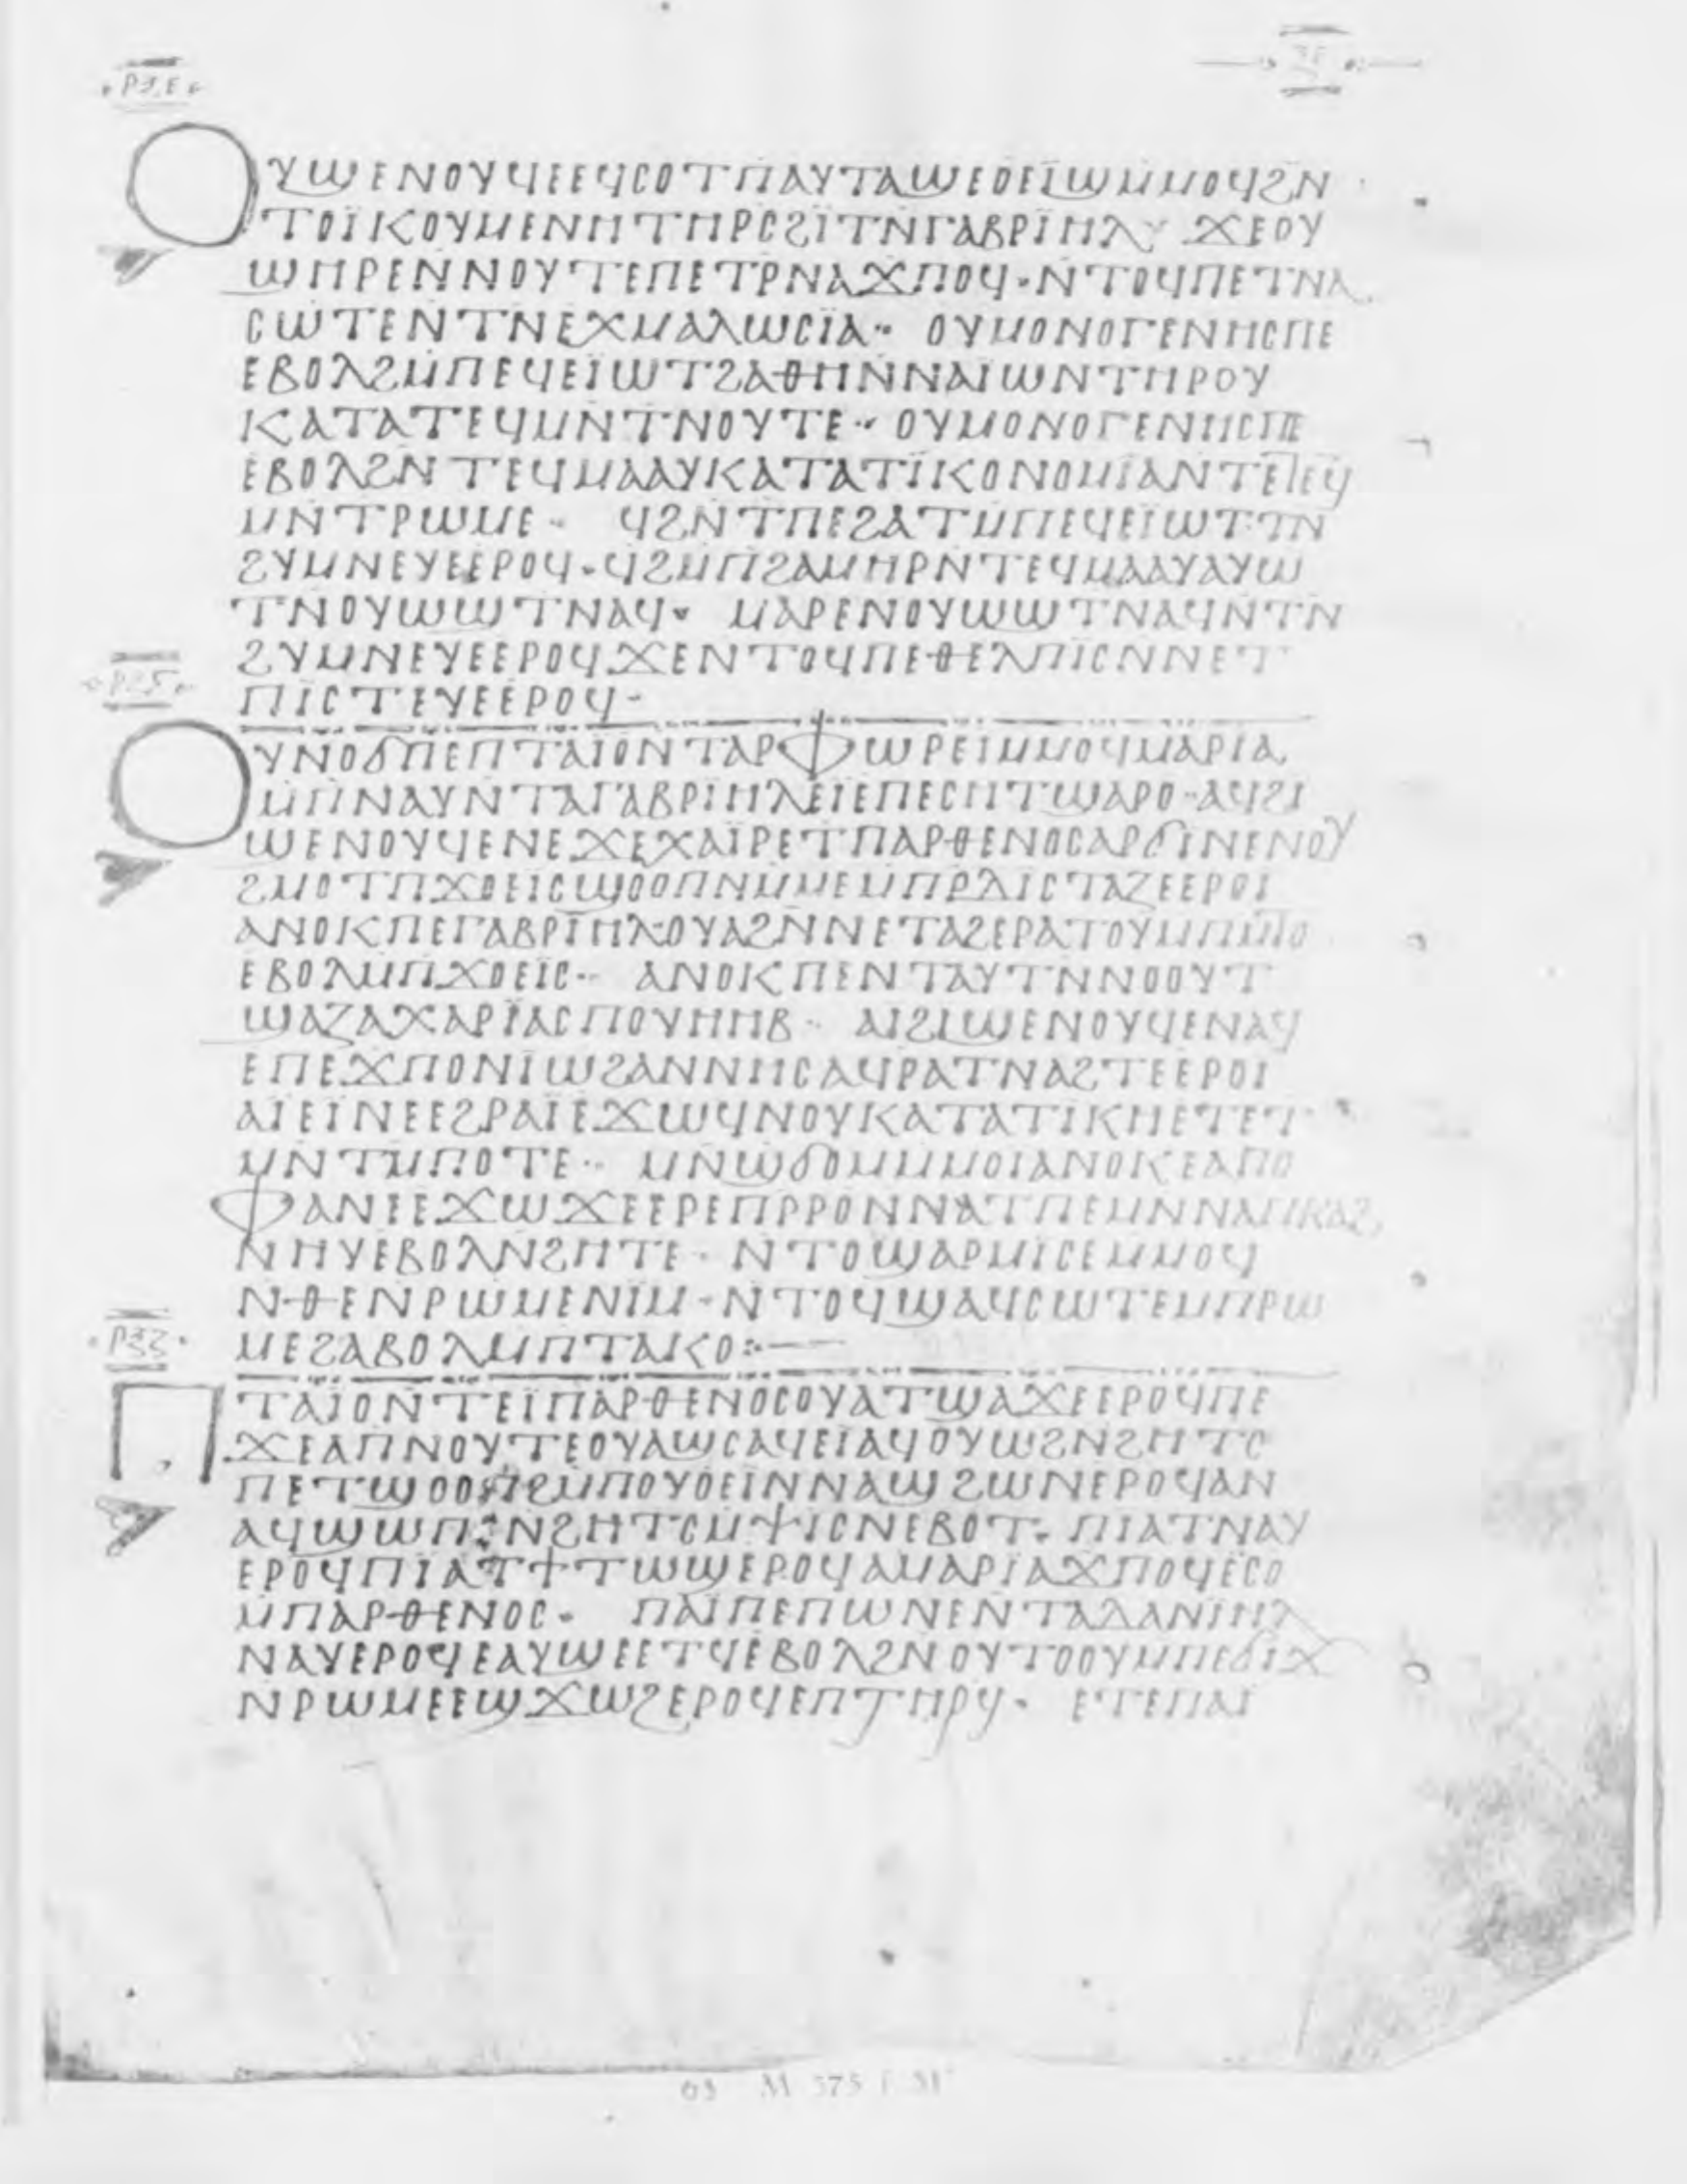 ⲞⲨϢⲈⲚⲞⲨϤⲈⲈϤⲤⲞⲦⲠⲀⲨⲦⲀϢⲈⲞⲈⲒϢⲘⲘⲞϤϨⲚ
ⲦⲞⲒⲔⲞⲨⲘⲈⲚⲎⲦⲎⲢⲤϨⲒⲦⲚⲄⲀⲂⲢⲒⲎⲖ ϪⲈⲞⲨ
ϢⲎⲢⲈⲚⲚⲞⲨⲦⲈⲠⲈⲦⲢⲚⲀϪⲠⲞϤ·ⲚⲦⲞϤⲠⲈⲦⲚⲀ
ⲤⲰⲦⲈⲚⲦⲚⲈⲬⲘⲀⲖⲰⲤⲒⲀ·· ⲞⲨⲘⲞⲚⲞⲄⲈⲚⲎⲤⲠⲈ
ⲈⲂⲞⲖϨⲘⲠⲈϤⲈⲒⲰⲦϨⲀⲐⲎⲚⲚⲀⲒⲰⲚⲦⲎⲢⲞⲨ
ⲔⲀⲦⲀⲦⲈϤⲘⲚⲦⲚⲞⲨⲦⲈ·· ⲞⲨⲘⲞⲚⲞⲄⲈⲚⲎⲤⲠⲈ
ⲈⲂⲞⲖϨⲚⲦⲈϤⲘⲀⲀⲨⲔⲀⲦⲀⲦⲒⲔⲞⲚⲞⲘⲒⲀⲚⲦⲈⲠⲈϤ
ⲘⲚⲦⲢⲰⲘⲈ·· ϤϨⲚⲦⲠⲈϨⲀⲦⲘⲠⲈϤⲈⲒⲰⲦ·ⲦⲚ
ϨⲨⲘⲚⲈⲨⲈⲈⲢⲞϤ·ϤϨⲘⲠϨⲀⲘⲎⲢⲚⲦⲈϤⲘⲀⲀⲨⲀⲨⲰ
ⲦⲚⲞⲨⲰϢⲦⲚⲀϤ· ⲘⲀⲢⲈⲚⲞⲨⲰϢⲦⲚⲀϤⲚⲦⲚ
ϨⲨⲘⲚⲈⲨⲈⲈⲢⲞϤϪⲈⲚⲦⲞϤⲠⲈⲐⲈⲖⲠⲒⲤⲚⲚⲈⲦ
ⲠⲒⲤⲦⲈⲨⲈⲈⲢⲞϤ·
ⲞⲨⲚⲞϬⲠⲈⲠⲦⲀⲒⲞⲚⲦⲀⲢⲪⲰⲢⲈⲒⲘⲘⲞϤⲘⲀⲢⲒⲀ
ⲘⲠⲚⲀⲨⲚⲦⲀⲄⲀⲂⲢⲒⲎⲖⲈⲒⲈⲠⲈⲤⲎⲦϢⲀⲢⲞ·ⲀϤϨⲒ
ϢⲈⲚⲞⲨϤⲈⲚⲈϪⲈⲬⲀⲒⲢⲈⲦⲠⲀⲢⲐⲈⲚⲞⲤⲀⲢϬⲒⲚⲈⲚⲞⲨ
ϨⲘⲞⲦⲠϪⲞⲈⲒⲤϢⲞⲞⲠⲚⲘⲘⲈⲘⲠⲢⲆⲒⲤⲦⲀⲌⲈⲈⲢⲞⲒ
ⲀⲚⲞⲔⲠⲈⲄⲀⲂⲢⲒⲎⲖ·ⲞⲨⲀϨⲚⲚⲈⲦⲀϨⲈⲢⲀⲦⲞⲨⲘⲠⲘⲦⲞ
ⲈⲂⲞⲖⲘⲠϪⲞⲈⲒⲤ·· ⲀⲚⲞⲔⲠⲈⲚⲦⲀⲨⲦⲚⲚⲞⲞⲨⲦ
ϢⲀⲌⲀⲬⲀⲢⲒⲀⲤⲠⲞⲨⲎⲎⲂ·· ⲀⲒϨⲒϢⲈⲚⲞⲨϤⲈⲚⲀϤ
ⲈⲠⲈϪⲠⲞⲚⲒⲰϨⲀⲚⲚⲎⲤⲀϤⲢⲀⲦⲚⲀϨⲦⲈⲈⲢⲞⲒ
ⲀⲒⲈⲒⲚⲈⲈϨⲢⲀⲒⲈϪⲰϤⲚⲞⲨⲔⲀⲦⲀⲦⲒⲔⲎⲈⲦⲈⲦ
ⲘⲚⲦⲘⲠⲟⲦⲈ·· ⲘⲚϢϬⲞⲘⲘⲘⲞⲒⲀⲚⲞⲔⲈⲀⲠⲞ
ⲪⲀⲚⲈⲈϪⲰϪⲈⲈⲢⲈⲠⲢⲢⲞⲚⲚⲀⲦⲠⲈⲘⲚⲚⲀⲠⲔⲀϨ
ⲚⲎⲨⲈⲂⲞⲖⲚϨⲎⲦⲈ· ⲚⲦⲞϢⲀⲢⲘⲒⲤⲈⲘⲘⲞϤ
ⲚⲐⲈⲚⲢⲰⲘⲈⲚⲒⲘ·ⲚⲦⲞϤϢⲀϤⲤⲰⲦⲈⲘⲠⲢⲰ
ⲘⲈϨⲀⲂⲞⲖⲘⲠⲦⲀⲔⲞ:·—
ⲠⲦⲀⲒⲞⲚⲦⲈⲒⲠⲀⲢⲐⲈⲚⲞⲤⲞⲨⲀⲦϢⲀϪⲈⲈⲢⲞϤⲠⲈ
ϪⲈⲀⲠⲚⲞⲨⲦⲈⲞⲨⲀϢⲤⲀϤⲈⲒⲀϤⲞⲨⲰϨⲚϨⲎⲦⲤ
ⲠⲈⲦϢⲞⲞⲠϨⲘⲠⲞⲨⲞⲈⲒⲚⲚⲀϢϨⲰⲚⲈⲢⲞϤⲀⲚ
ⲀϤϢⲰⲠⲈⲚϨⲎⲦⲤⲘⲮⲒⲤⲚⲈⲂⲞⲦ· ⲠⲒⲀⲦⲚⲀⲨ
ⲈⲢⲞϤⲠⲒⲀⲦϮⲦⲰϢⲈⲢⲞϤⲀⲘⲀⲢⲒⲀϪⲠⲞϤⲈⲤⲞ
ⲘⲠⲀⲢⲐⲈⲚⲞⲤ· ⲠⲀⲒⲠⲈⲠⲰⲚⲈⲚⲦⲀⲆⲀⲚⲒⲎⲖ
ⲚⲀⲨⲈⲢⲞϤⲈⲀⲨϢⲈⲈⲦϤⲈⲂⲞⲖϨⲚⲞⲨⲦⲞⲞⲨⲘⲠⲈϬⲒϪ
ⲚⲢⲰⲘⲈⲈϢϪⲰϨⲈⲢⲞϤⲈⲠⲦⲎⲢϤ· ⲈⲦⲈⲠⲀⲒ